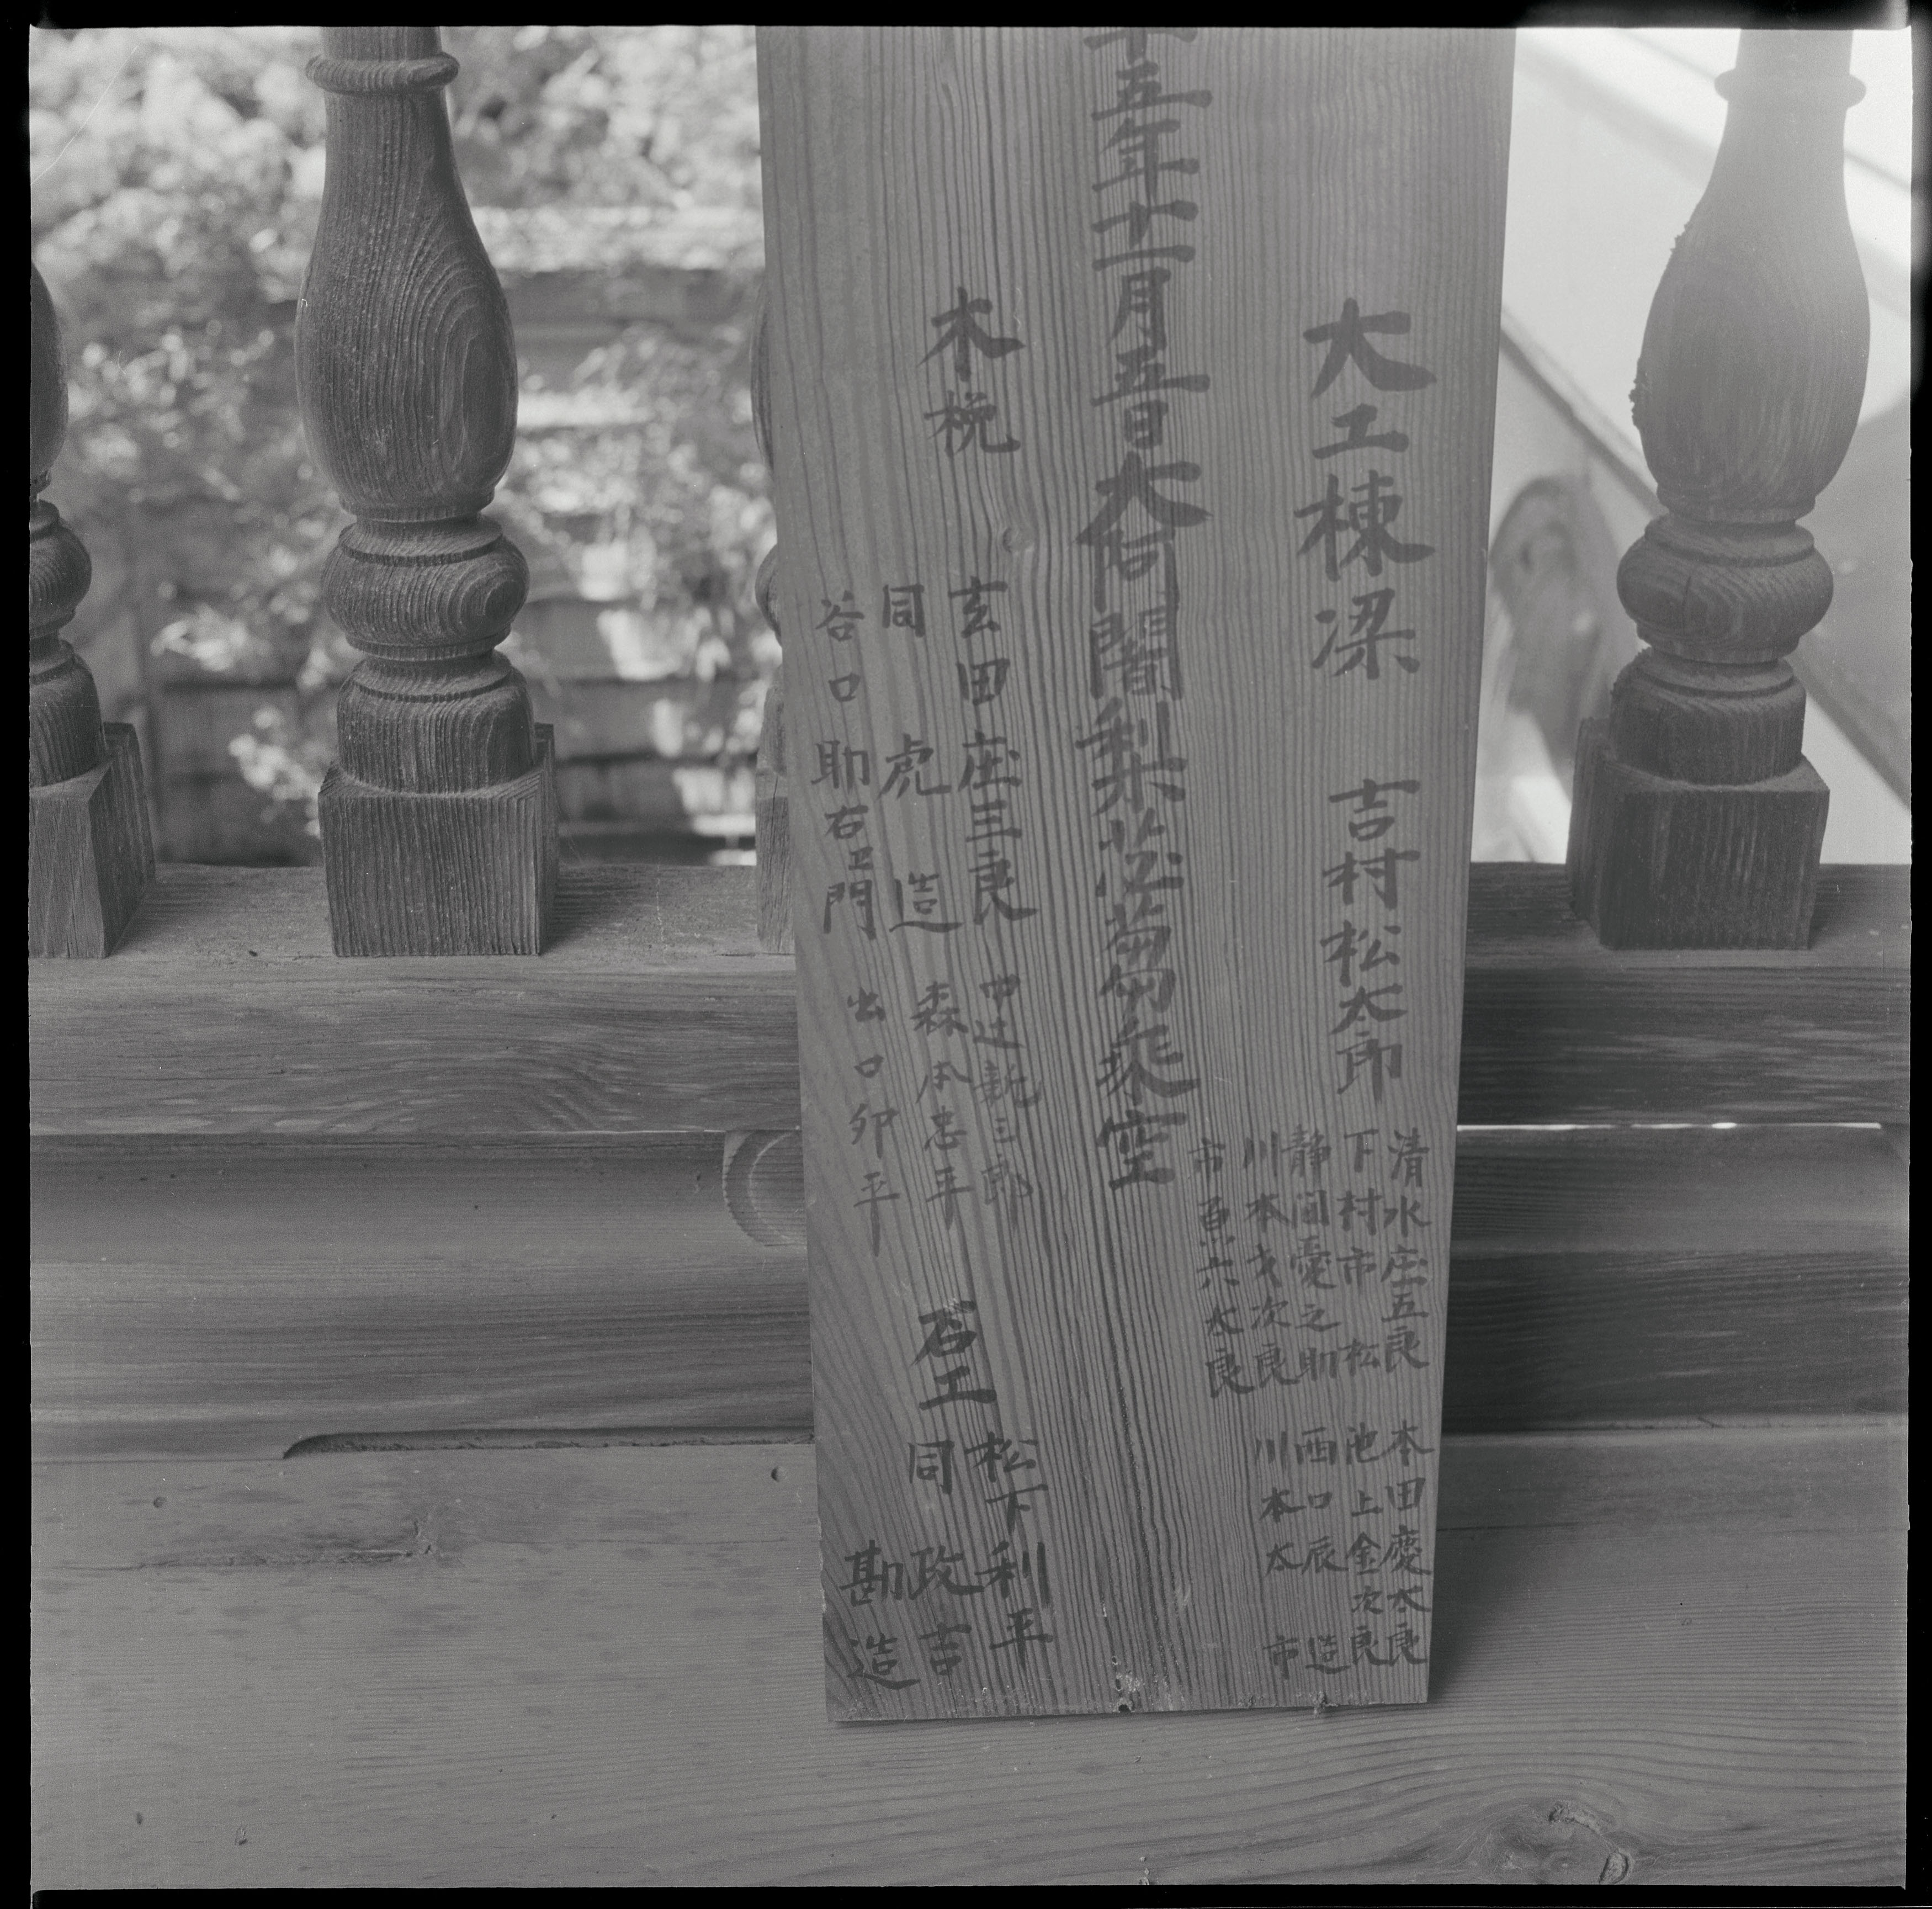 大工棟梁 吉村松太郎
清水庄五良
下村市松
静間憂之助
川本戈次良
市良六太良
本田慶太良
池上金次良
西口辰造
川本太市
十五年十一月五日大阿闍梨苾蒭乘空
木挽
玄田庄三良
同 虎造
谷口助右卫門
中辻乾三郎
森本忠平
出口卯平
石工
松下利平
同 政吉
勘造